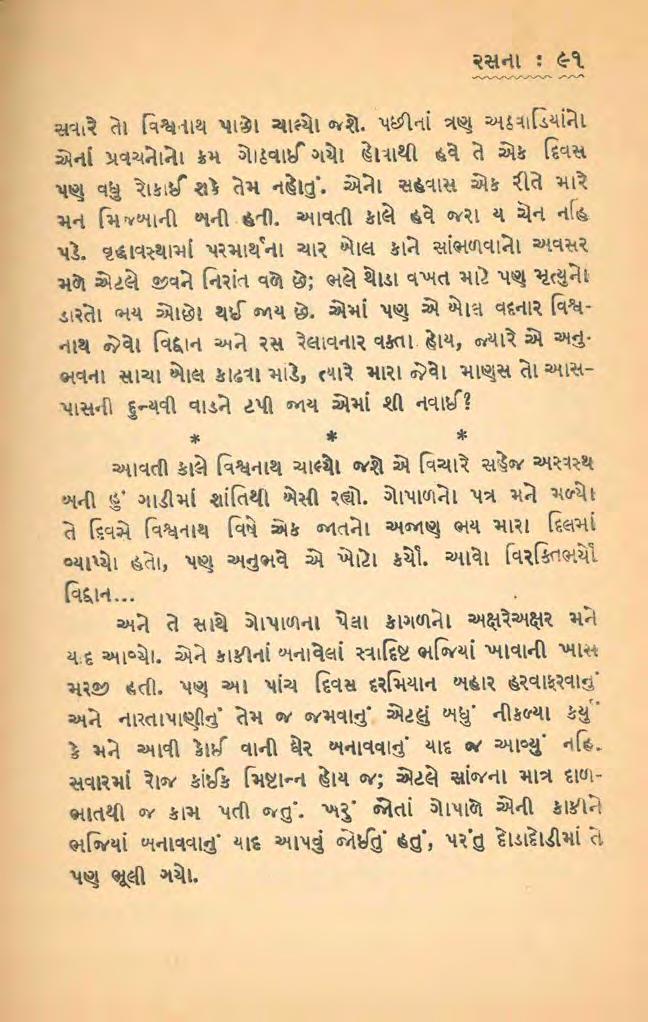 રસના : ૯૧
સવારે તો વિશ્વનાથ પાછો ચાલ્યો જશે. પછીનાં ત્રણ અઠવાડિયાંનો
એનાં પ્રવચનોનો ક્રમ ગોઠવાઈ ગયો હોવાથી હવે તે એક દિવસ
પણ વધુ રોકાઈ શકે તેમ નહોતું. એનો સહવાસ એક રીતે મારે
મન મિજબાની બની હતી. આવતી કાલે હવે જરા ય ચેન નહિ
પડે. વૃદ્ધાવસ્થામાં પરમાર્થના ચાર બોલ કાને સાંભળવાનો અવસર
મળે એટલે જીવને નિરાંત વળે છે; ભલે થોડા વખત માટે પણ મૃત્યુનો
ડારતો ભય ઓછો થઈ જાય છે. એમાં પણ એ બોલ વદનાર વિશ્વ-
નાથ જેવો વિદ્વાન અને રસ રેલાવનાર વક્તા હોય, જ્યારે એ અનુ-
ભવના સાચા બોલ કાઢવા માંડે, ત્યારે મારા જેવો માણસ તો આસ-
પાસની દુન્યવી વાડને ટપી જાય એમાં શી નવાઈ?
* * *
આવતી કાલે વિશ્વનાથ ચાલ્યો જશે એ વિચારે સહેજ અસ્વસ્થ
બની હું ગાડીમાં શાંતિથી બેસી રહ્યો. ગોપાળનો પત્ર મને મળ્યો
તે દિવસે વિશ્વનાથ વિષે એક જાતનો અજાણ ભય મારા દિલમાં
વ્યાપ્યો હતો, પણ અનુભવે એ ખોટો કર્યો. આવો વિરક્તિભર્યો
વિદ્વાન...
અને તે સાથે ગોપાળના પેલા કાગળનો અક્ષરેઅક્ષર મને
યાદ આવ્યો. એને કાકીનાં બનાવેલાં સ્વાદિષ્ટ ભજિયાં ખાવાની ખાસ
મરજી હતી. પણ આ પાંચ દિવસ દરમિયાન બહાર હરવાફરવાનું
અને નાસ્તાપાણીનું તેમ જ જમવાનું એટલું બધું નીકળ્યા કર્યું
કે મને આવી કોઈ વાની ઘેર બનાવવાનું યાદ જ આવ્યું નહિ.
સવારમાં રોજ કાંઈક મિષ્ટાન્ન હોય જ; એટલે સાંજના માત્ર દાળ-
ભાતથી જ કામ પતી જતું. ખરું જોતાં ગોપાળે એની કાકીને
ભજિયાં બનાવવાનું યાદ આપવું જોઈતું હતું, પરંતુ દોડાદોડીમાં તે
પણ ભૂલી ગયો.